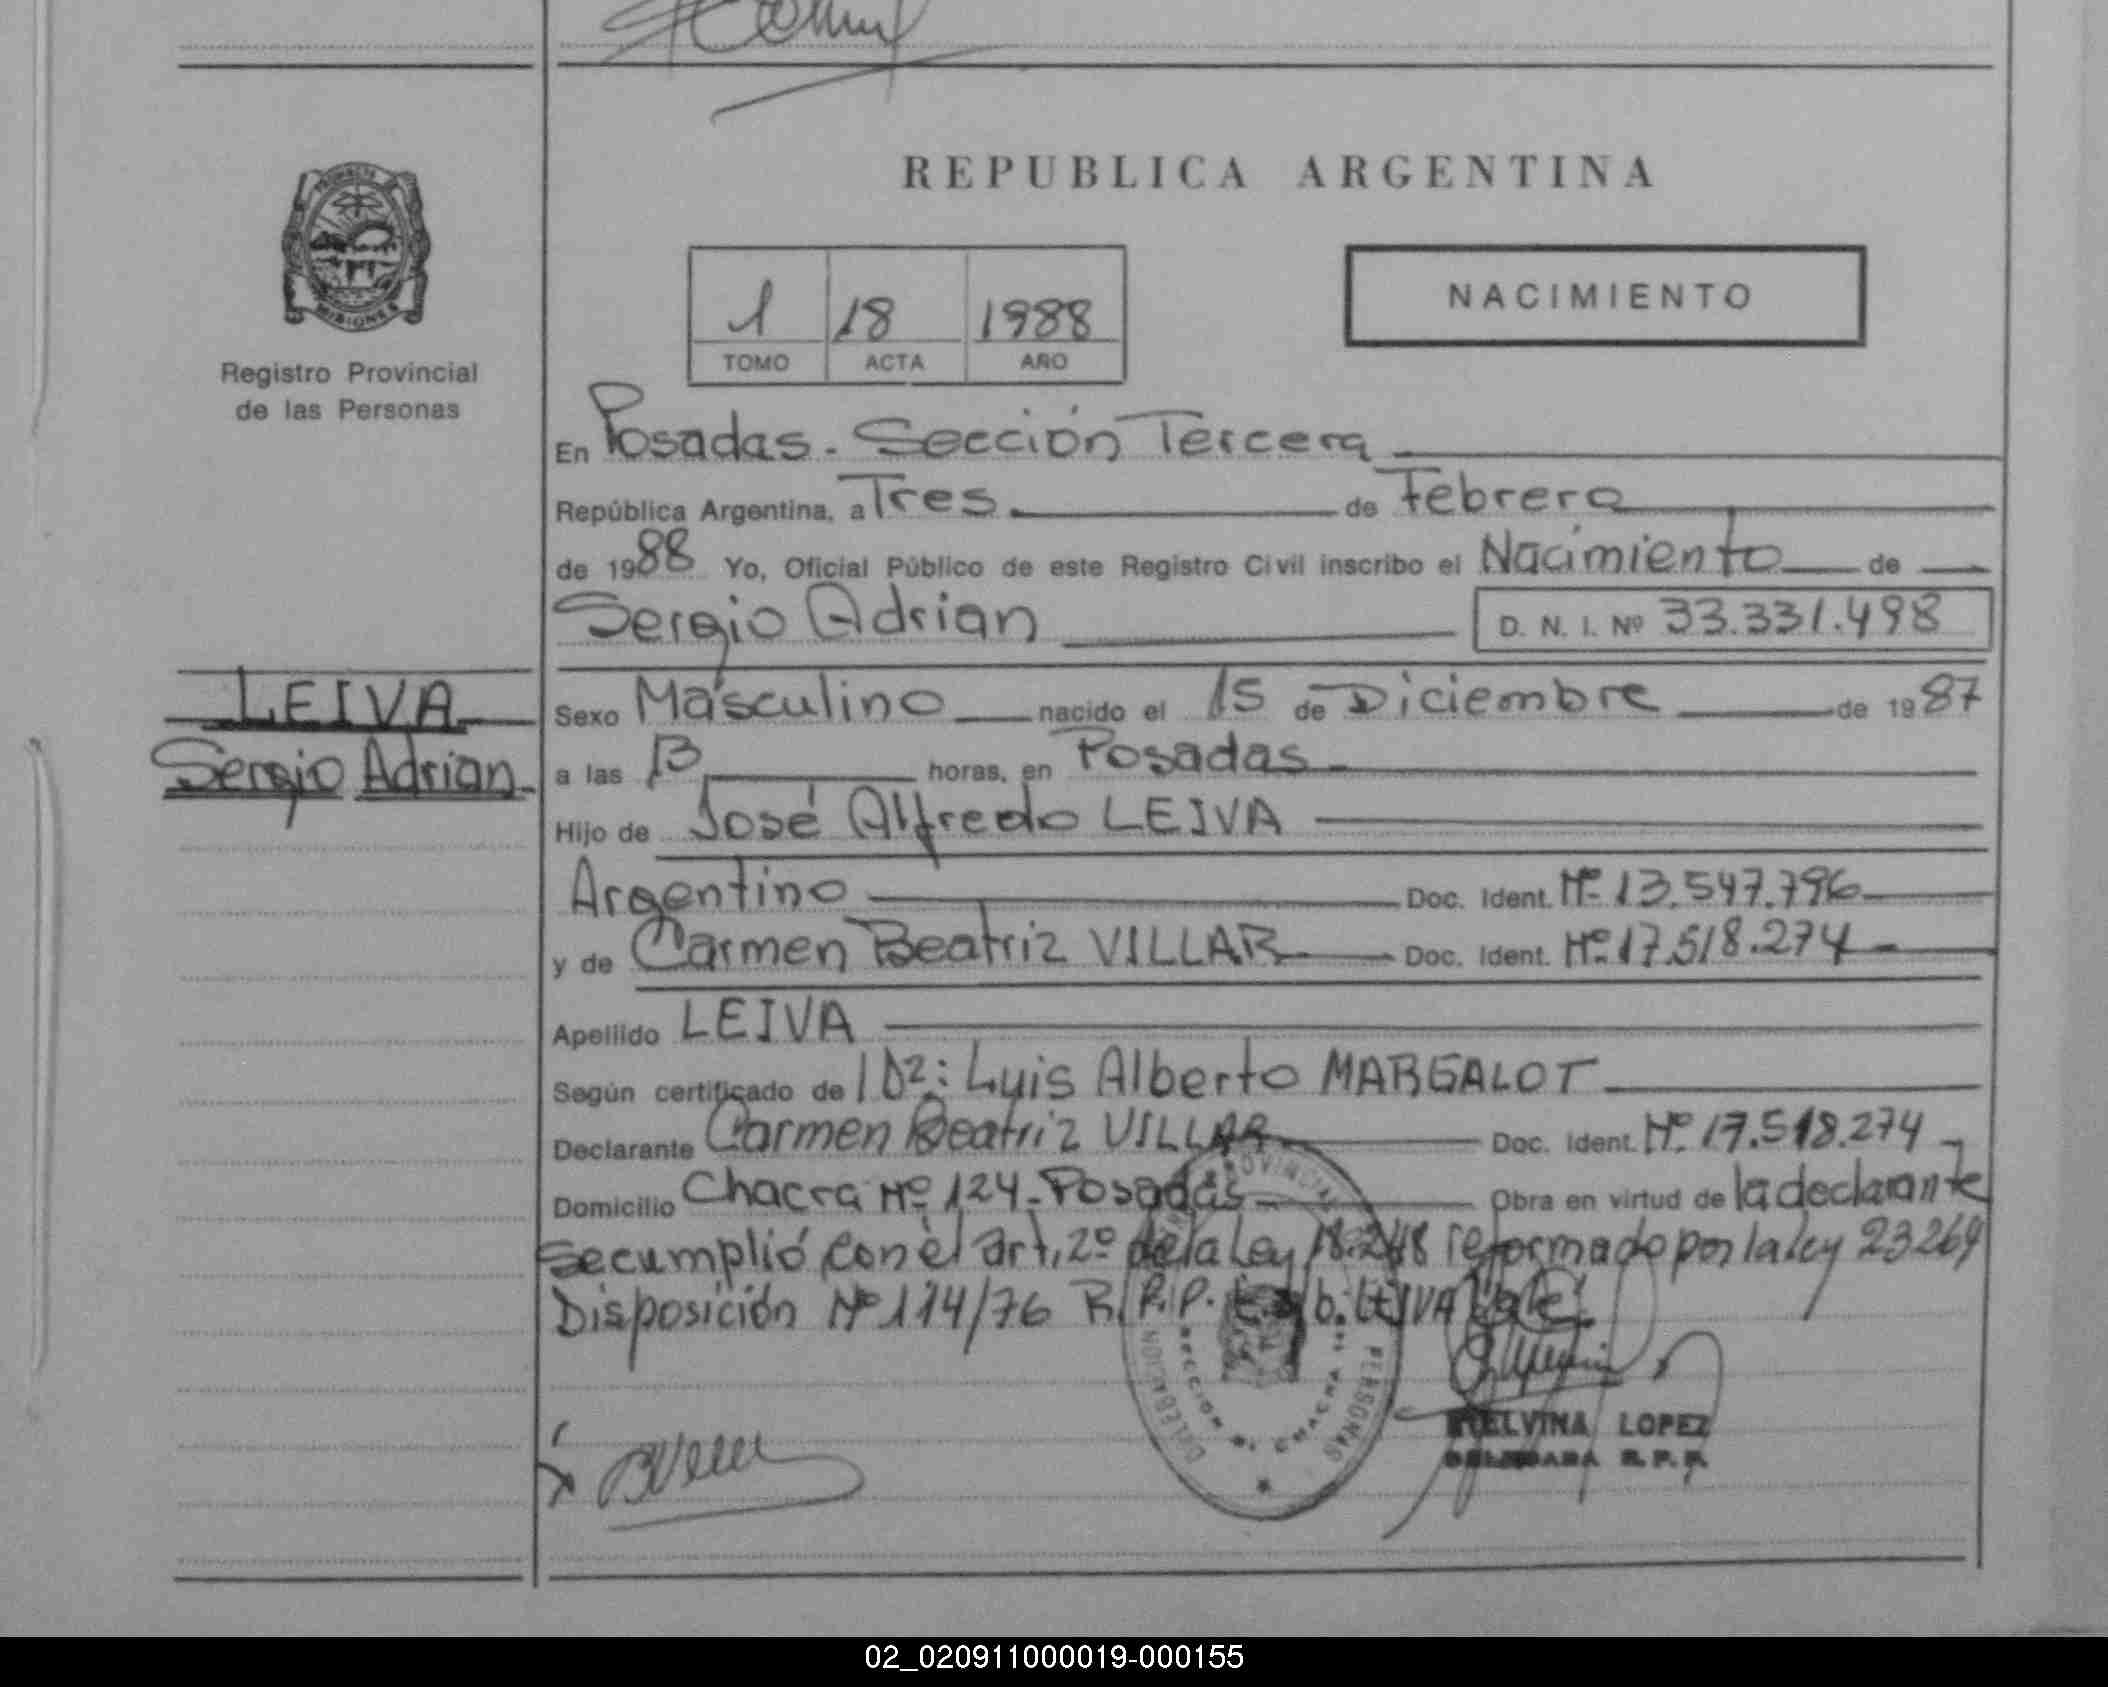 REPUBLICA ARGENTINA
PROVINCIA DE
MISIONES
Registro Provincial
de las Personas
1 18 1988
TOMO ACTA AÑO
NACIMIENTO
En Posadas. Sección Tercera
República Argentina, a Tres de Febrero
de 1988 Yo, Oficial Público de este Registro Civil inscribo el Nacimiento de
Sergio Adrian D. N. I. Nº 33.331.498
LEIVA
Sergio Adrian
Sexo Masculino nacido el 15 de Diciembre de 1987
a las 13 horas, en Posadas
Hijo de José Alfredo LEIVA
Argentino Doc. Ident. Nº 13.547.796
y de Carmen Beatriz VILLAR Doc. Ident. Nº 17.518.274
Apellido LEIVA
Según certificado de Luis Alberto MARGALOT
Declarante Carmen Beatriz VILLAR Doc. Ident. Nº 17.518.274
Domicilio Chacra Nº 124 - Posadas Obra en virtud de la declarante
se cumplió con el art. 2º de la Ley 18.248 reformado por la ley 23264
Disposición Nº 114/76 R.P.P. LEIVA Vale
PERSONAS
SECCION
CHACRA
LOPEZ
R.P.P.
02_020911000019-000155